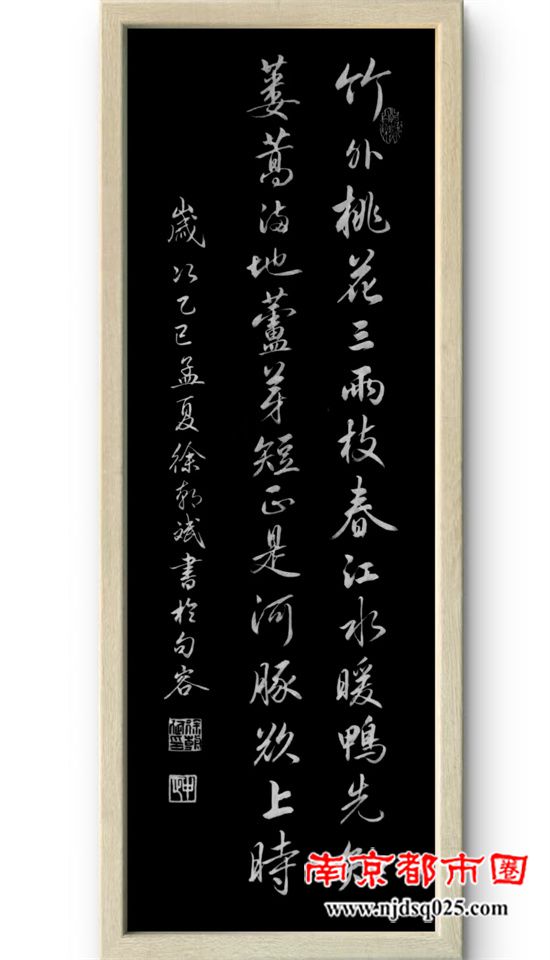 竹外桃花三兩枝春江水暖鴨先知
蔞蒿满地蘆芽短正是河豚欲上時
歲次乙巳孟夏徐朝斌書於句容
南京都市圈
www.njdsq025.com